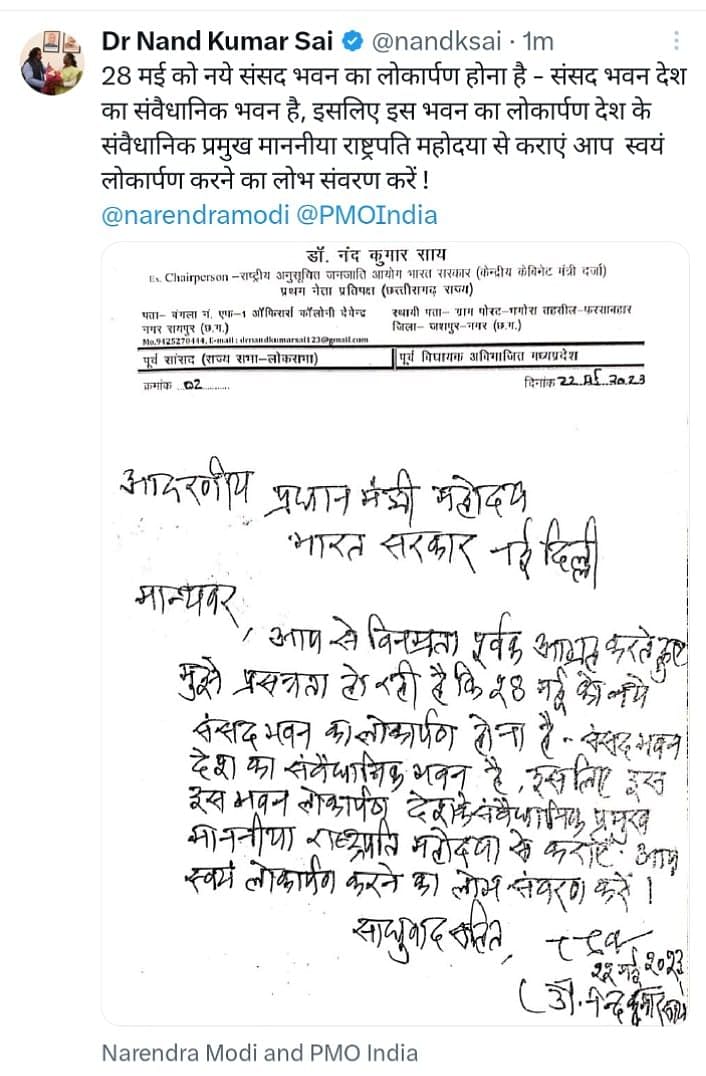 Dr Nand Kumar Sai @nandksai · 1m
28 मई को नये संसद भवन का लोकार्पण होना है - संसद भवन देश
का संवैधानिक भवन है, इसलिए इस भवन का लोकार्पण देश के
संवैधानिक प्रमुख माननीया राष्ट्रपति महोदया से कराएं आप स्वयं
लोकार्पण करने का लोभ संवरण करें !
@narendramodi @PMOIndia
डॉ. नंद कुमार साय
Ex. Chairperson –राष्ट्रीय अनुसूचित जनजाति आयोग भारत सरकार (केन्द्रीय केबिनेट मंत्री दर्जा)
प्रथम नेता प्रतिपक्ष (छत्तीसगढ़ राज्य)
पता– बंगला नं. एफ–1 ऑफिसर्स कॉलोनी देवेन्द्र
नगर रायपुर (छ.ग.)
स्थायी पता– ग्राम पोस्ट–भगोरा तहसील–फरसाबहार
जिला– जशपुर–नगर (छ.ग.)
Mo.9425270414, E-mail : drnandkumarsai123@gmail.com
पूर्व सांसद (राज्य सभा–लोकसभा)
पूर्व विधायक अविभाजित मध्यप्रदेश
क्रमांक ..02..........
दिनांक 22 मई 2023
आदरणीय प्रधान मंत्री महोदय
भारत सरकार नई दिल्ली
मान्यवर,
आप से विनम्रता पूर्वक आग्रह करते हुए
मुझे प्रसन्नता हो रही है कि २8 मई को नये
संसद भवन का लोकार्पण होना है - संसद भवन
देश का संवैधानिक भवन है, इसलिए इस
इस भवन लोकार्पण देश के संवैधानिक प्रमुख
माननीया राष्ट्रपति महोदया से कराएं. आप
स्वयं लोकार्पण करने का लोभ संवरण करें ।
साधुवाद सहित,
२२ मई २०२३
(डॉ. नन्द कुमार साय
Narendra Modi and PMO India